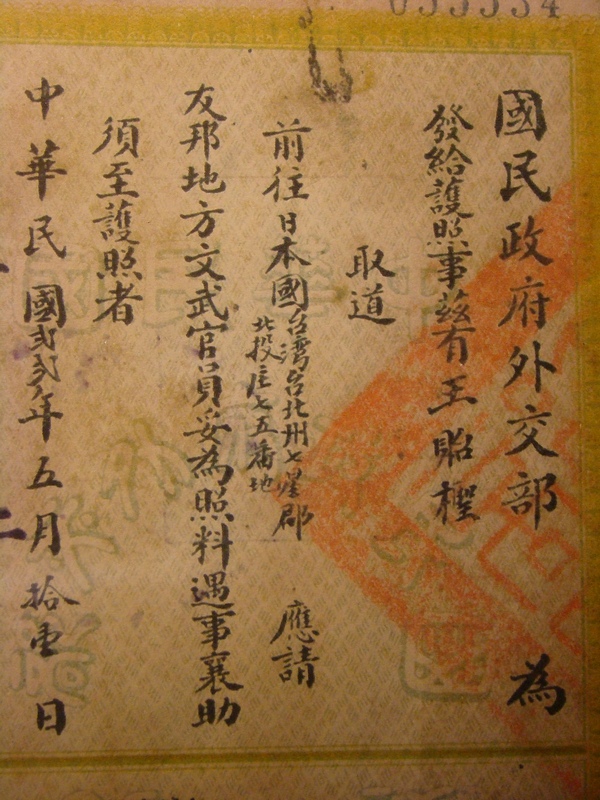 國民政府外交部 為
發給護照事茲有王貽檉
取道
前往日本國台湾台北州七星郡
北投庄七五番地
應請
友邦地方文武官員妥為照料遇事襄助
須至護照者
中華民國弍弍年五月拾壹日